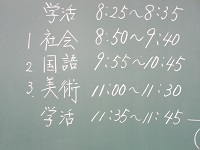 学活 8:25～8:35
1 社会 8:50～9:40
2 国語 9:55～10:45
3. 美術 11:00～11:30
学活 11:35～11:45